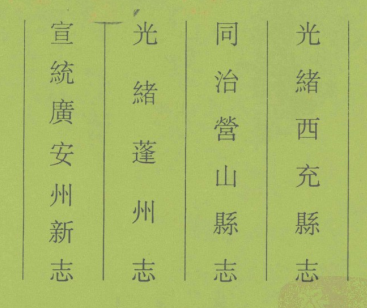 光緒西充縣志
同治營山縣志
光緒蓬州志
宣統廣安州新志